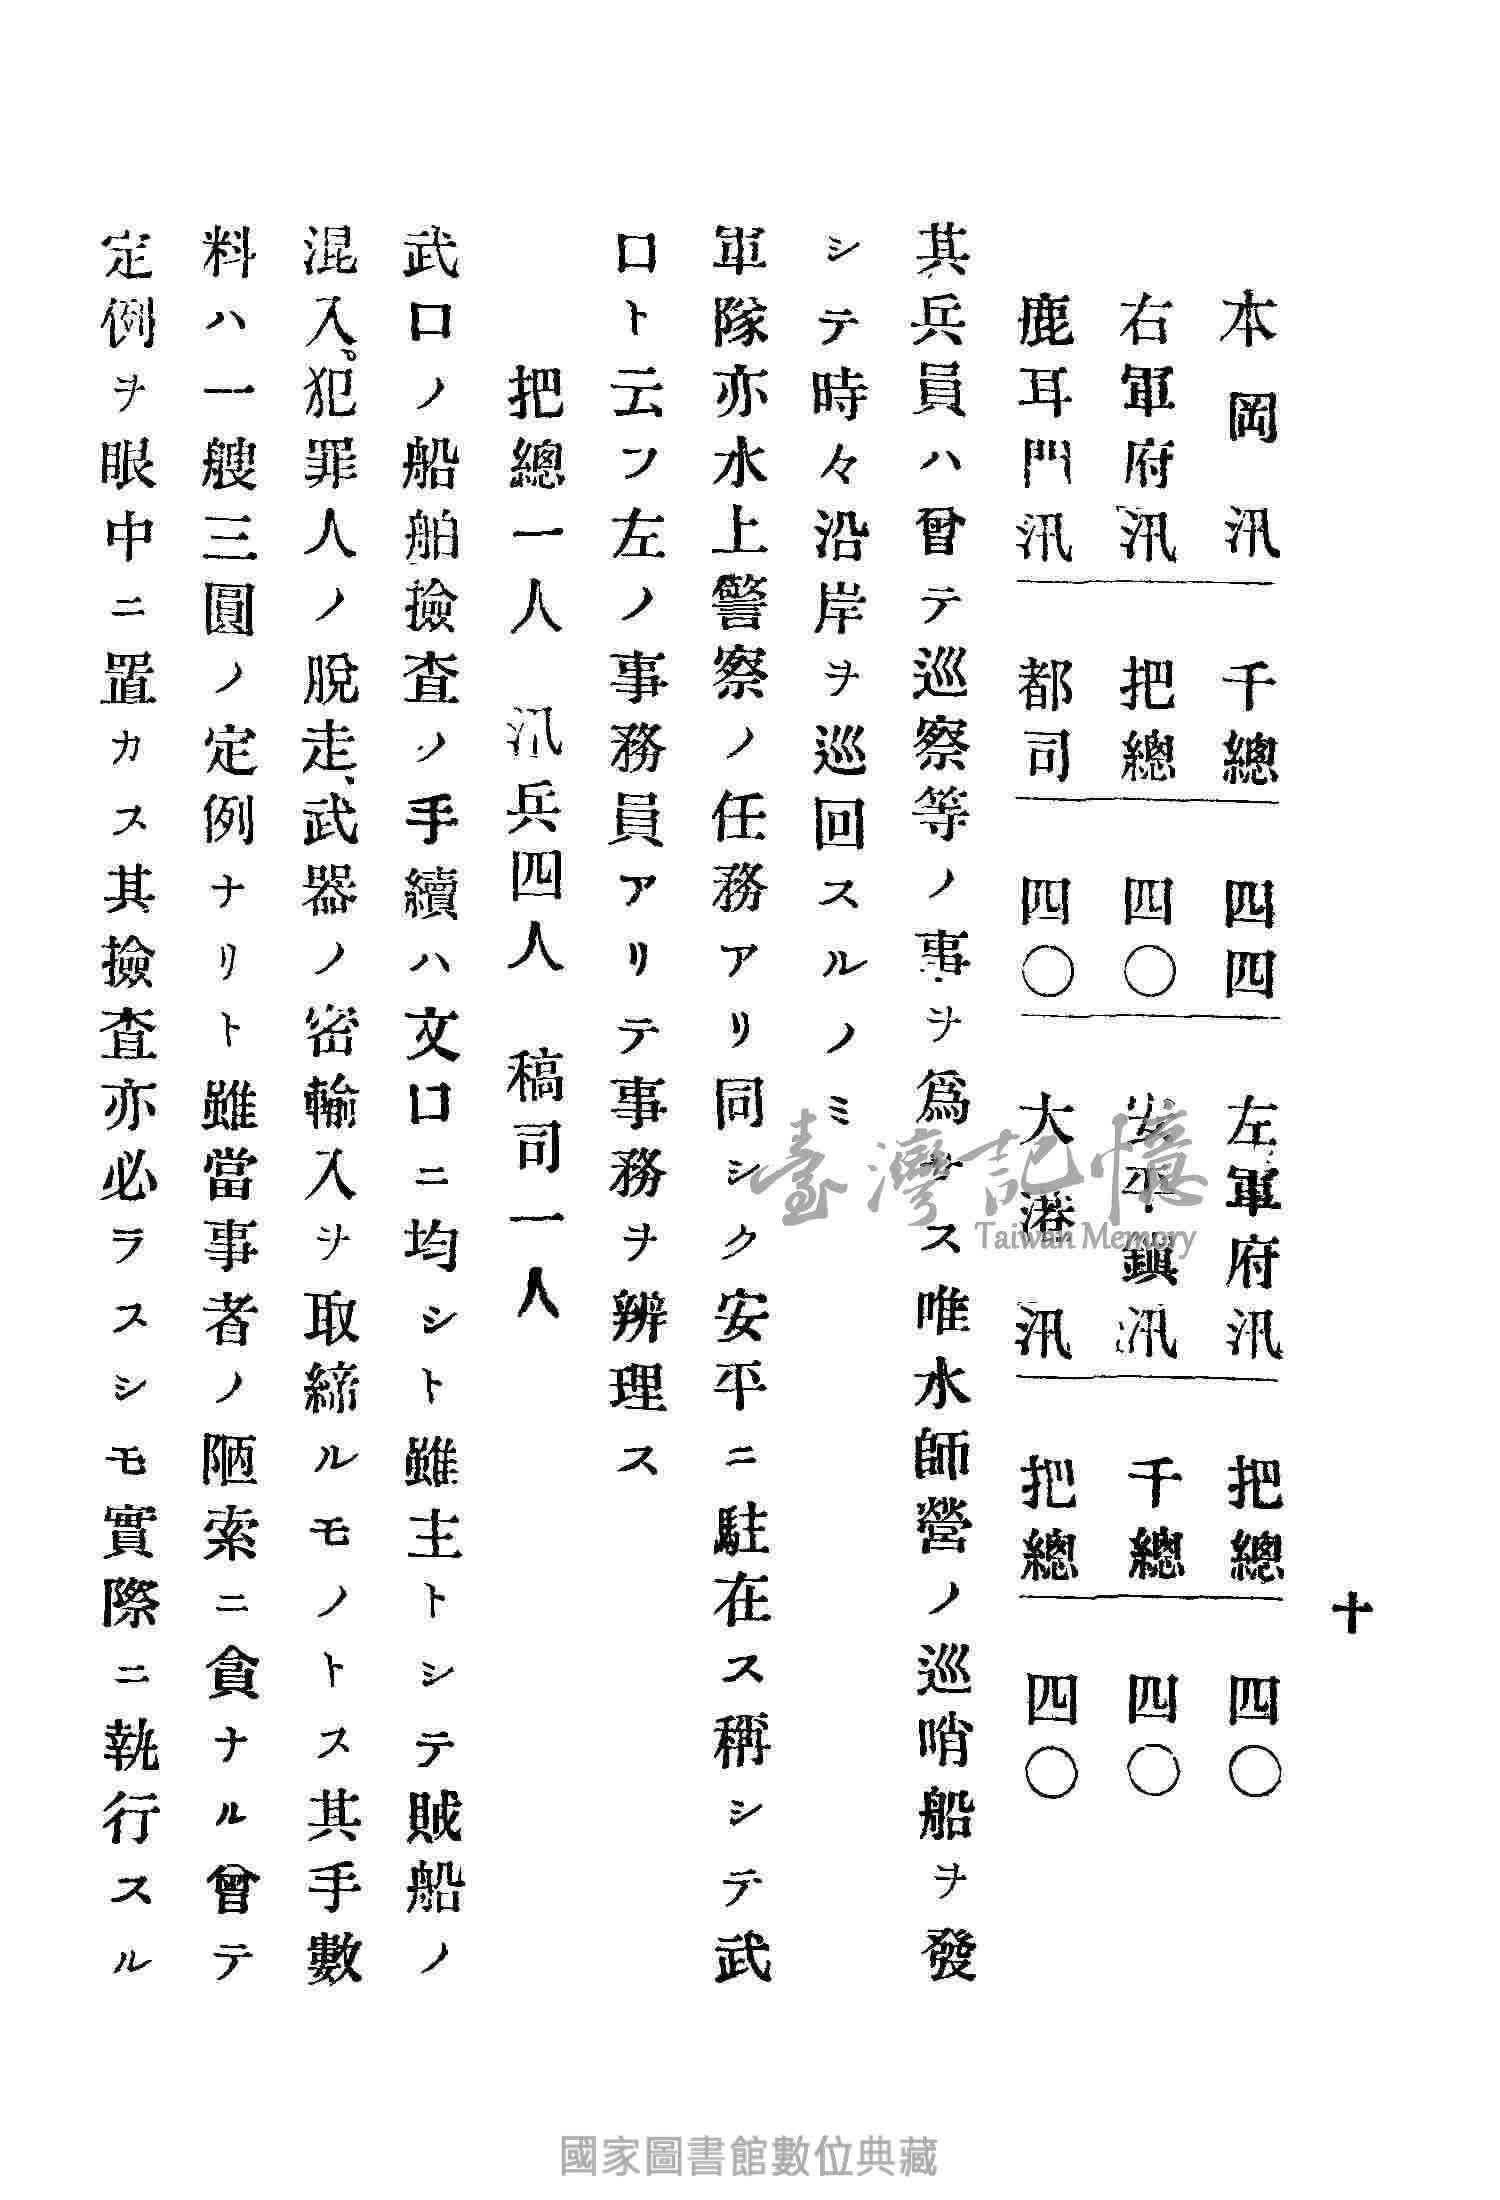 十
本岡汛 千總 四四 左軍府汛 把總 四〇
右軍府汛 把總 四〇 安平鎮汛 千總 四〇
鹿耳門汛 都司 四〇 大港汛 把總 四〇
其兵員ハ曾テ巡察等ノ事ヲ爲サス唯水師營ノ巡哨船ヲ發
シテ時々沿岸ヲ巡回スルノミ
軍隊亦水上警察ノ任務アリ同シク安平ニ駐在ス稱シテ武
口ト云フ左ノ事務員アリテ事務ヲ辨理ス
把總一人 汛兵四人 稿司一人
武口ノ船舶撿査ノ手續ハ文口ニ均シト雖主トシテ賊船ノ
混入。犯罪人ノ脫走、武器ノ密輸入ヲ取締ルモノトス其手數
料ハ一艘三圓ノ定例ナリト雖當事者ノ陋索ニ貪ナル曾テ
定例ヲ眼中ニ置カス其撿査亦必ラスシモ實際ニ執行スル
臺灣記憶
Taiwan Memory
國家圖書館數位典藏